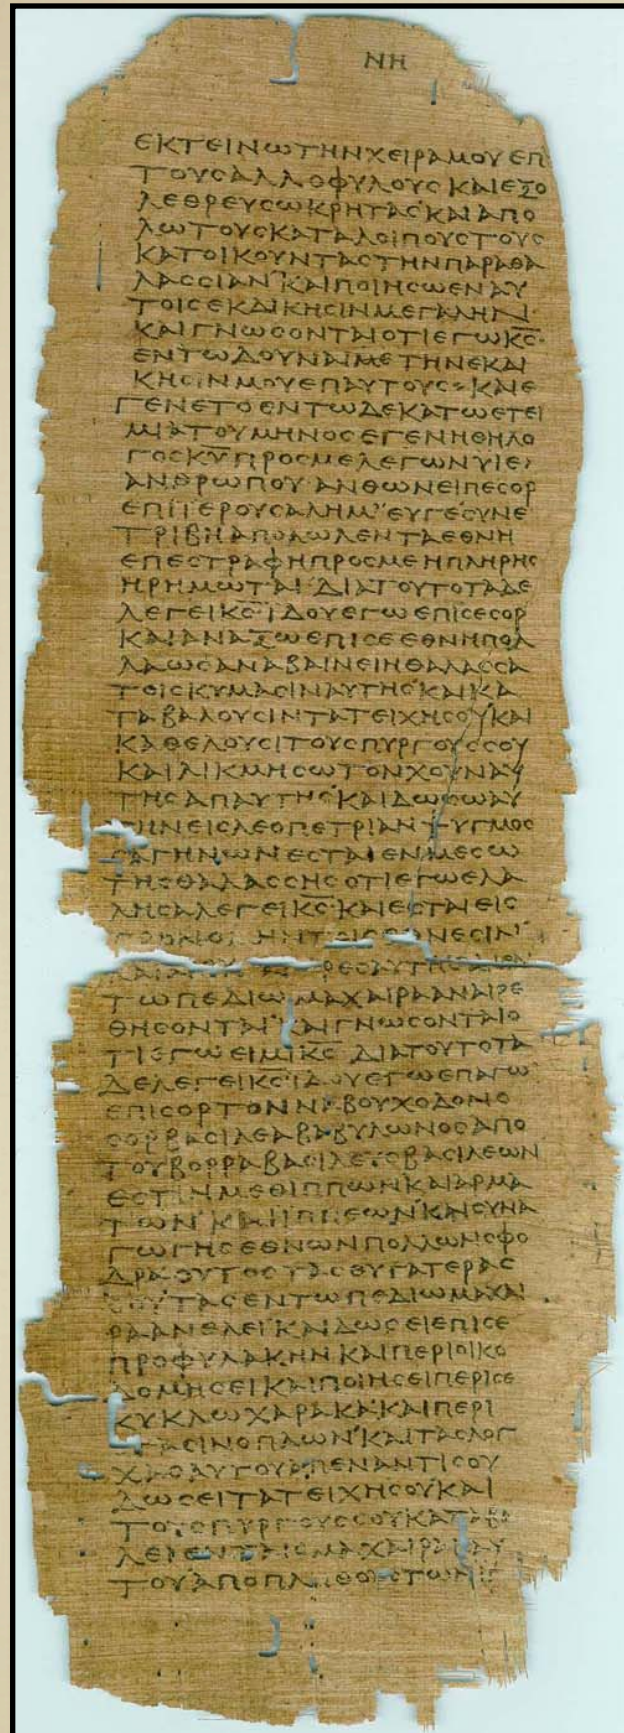 ΝΗ
ΕΚΤΕΙΝΩΤΗΝΧΕΙΡΑΜΟΥΕΠΙ
ΤΟΥϹΑΛΛΟΦΥΛΟΥϹΚΑΙΕΞΟ
ΛΕΘΡΕΥϹΩΚΡΗΤΑϹΚΑΙΑΠΟ
ΛΩΤΟΥϹΚΑΤΑΛΟΙΠΟΥϹΤΟΥϹ
ΚΑΤΟΙΚΟΥΝΤΑϹΤΗΝΠΑΡΑΘΑ
ΛΑϹϹΙΑΝΚΑΙΠΟΙΗϹΩΕΝΑΥ
ΤΟΙϹΕΚΔΙΚΗϹΙΝΜΕΓΑΛΗΝ·
ΚΑΙΓΝΩϹΟΝΤΑΙΟΤΙΕΓΩΚ̅Ϲ̅·
ΕΝΤΩΔΟΥΝΑΙΜΕΤΗΝΕΚΔΙ
ΚΗϹΙΝΜΟΥΕΠΑΥΤΟΥϹ:ΚΑΙΕ
ΓΕΝΕΤΟΕΝΤΩΔΕΚΑΤΩΕΤΕΙ
ΜΙΑΤΟΥΜΗΝΟϹΕΓΕΝΗΘΗΛΟ
ΓΟϹΚ̅Υ̅ΠΡΟϹΜΕΛΕΓΩΝΥΙΕ
ΑΝΘΡΩΠΟΥΑΝΘΩΝΕΙΠΕϹΟΡ
ΕΠΙΙΕΡΟΥϹΑΛΗΜΕΥΓΕϹΥΝΕ
ΤΡΙΒΗΑΠΟΛΩΛΕΝΤΑΕΘΝΗ
ΕΠΕϹΤΡΑΦΗΠΡΟϹΜΕΗΠΛΗΡΗϹ
ΗΡΗΜΩΤΑΙΔΙΑΤΟΥΤΟΤΑΔΕ
ΛΕΓΕΙΚ̅Ϲ̅ΙΔΟΥΕΓΩΕΠΙϹΕϹΟΡ
ΚΑΙΑΝΑΞΩΕΠΙϹΕΕΘΝΗΠΟΛ
ΛΑΩϹΑΝΑΒΑΙΝΕΙΗΘΑΛΑϹϹΑ
ΤΟΙϹΚΥΜΑϹΙΝΑΥΤΗϹΚΑΙΚΑ
ΤΑΒΑΛΟΥϹΙΝΤΑΤΕΙΧΗϹΟΥΚΑΙ
ΚΑΘΕΛΟΥϹΙΤΟΥϹΠΥΡΓΟΥϹϹΟΥ
ΚΑΙΛΙΚΜΗϹΩΤΟΝΧΟΥΝΑΥ
ΤΗϹΑΠΑΥΤΗϹΚΑΙΔΩϹΩΑΥ
ΤΗΝΕΙϹΛΕΟΠΕΤΡΙΑΝΨΥΓΜΟϹ
ϹΑΓΗΝΩΝΕϹΤΑΙΕΝΜΕϹΩ
ΤΗϹΘΑΛΑϹϹΗϹΟΤΙΕΓΩΕΛΑ
ΛΗϹΑΛΕΓΕΙΚ̅Ϲ̅ΚΑΙΕϹΤΑΙΕΙϹ
ΤΩΠΕΔΙΩΜΑΧΑΙΡΑΑΝΑΙΡΕ
ΘΗϹΟΝΤΑΙΚΑΙΓΝΩϹΟΝΤΑΙΟ
ΤΙΕΓΩΕΙΜΙΚ̅Ϲ̅ΔΙΑΤΟΥΤΟΤΑ
ΔΕΛΕΓΕΙΚ̅Ϲ̅ΙΔΟΥΕΓΩΕΠΑΓΩ
ΕΠΙϹΟΡΤΟΝΝΑΒΟΥΧΟΔΟΝΟ
ϹΟΡΒΑϹΙΛΕΑΒΑΒΥΛΩΝΟϹΑΠΟ
ΤΟΥΒΟΡΡΑΒΑϹΙΛΕΥϹΒΑϹΙΛΕΩΝ
ΕϹΤΙΝΜΕΘΙΠΠΩΝΚΑΙΑΡΜΑ
ΤΩΝΚΑΙΙΠΠΕΩΝΚΑΙϹΥΝΑ
ΓΩΓΗϹΕΘΝΩΝΠΟΛΛΩΝϹΦΟ
ΔΡΑΟΥΤΟϹΤΑϹΘΥΓΑΤΕΡΑϹ
ϹΟΥΤΑϹΕΝΤΩΠΕΔΙΩΜΑΧΑΙ
ΡΑΑΝΕΛΕΙΚΑΙΔΩϹΕΙΕΠΙϹΕ
ΠΡΟΦΥΛΑΚΗΝΚΑΙΠΕΡΙΟΙΚΟ
ΔΟΜΗϹΕΙΚΑΙΠΟΙΗϹΕΙΠΕΡΙϹΕ
ΚΥΚΛΩΧΑΡΑΚΑΚΑΙΠΕΡΙ
ϹΤΑϹΙΝΟΠΛΩΝΚΑΙΤΑϹΛΟΓ
ΧΑϹΑΥΤΟΥΑΠΕΝΑΝΤΙϹΟΥ
ΔΩϹΕΙΤΑΤΕΙΧΗϹΟΥΚΑΙ
ΤΟΥϹΠΥΡΓΟΥϹϹΟΥΚΑΤΑΒΑ
ΤΟΥΑΠΟΠΛΗΘΟΥϹΤΩΝΙΠ